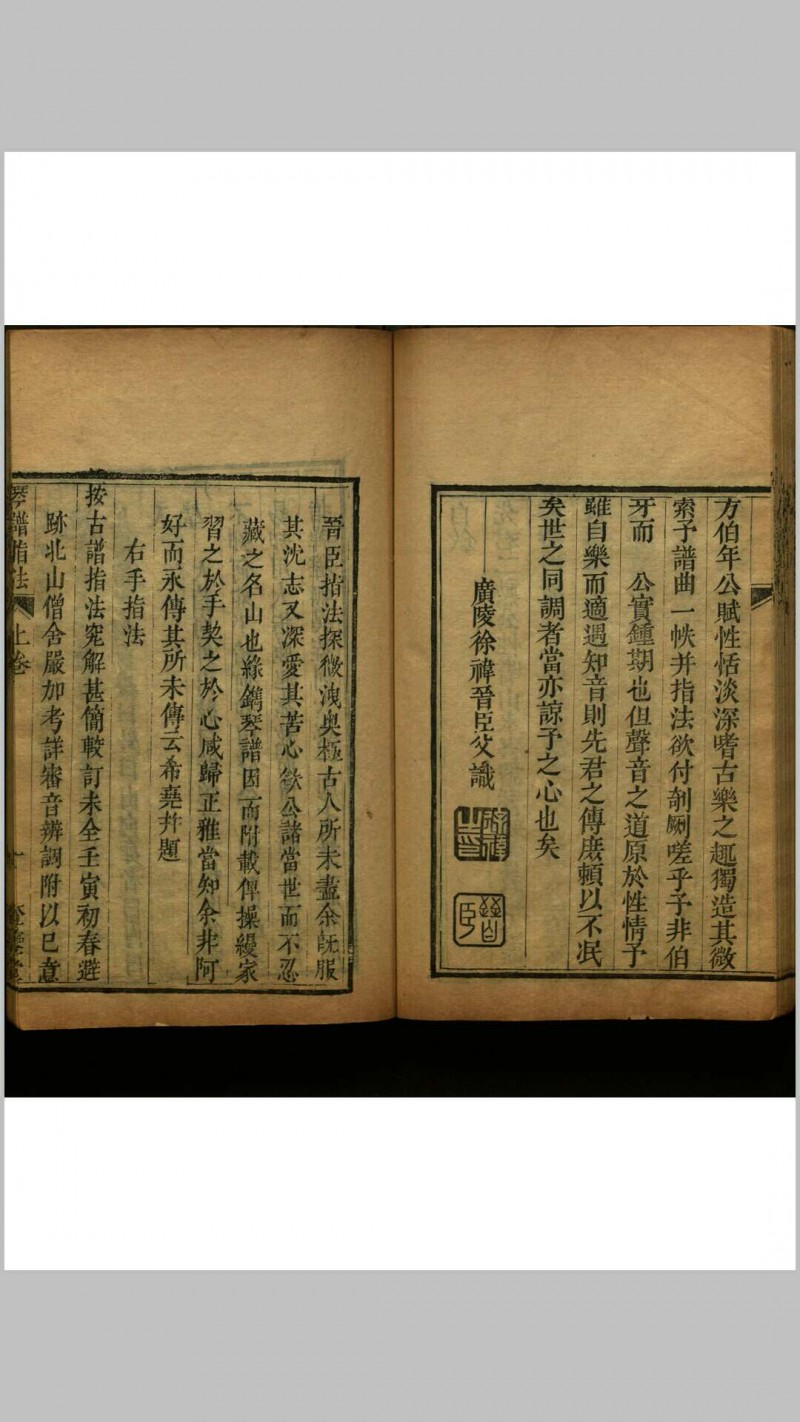 方伯年公賦性恬淡深嗜古樂之趣獨造其微
索予譜曲一帙并指法欲付剞劂嗟乎予非伯
牙而　公實鍾期也但聲音之道原於性情予
雖自樂而適遇知音則先君之傳庶頼以不冺
矣世之同調者當亦諒予之心也矣
廣陵徐禕晉臣父識
晉臣指法探微洩奥極古人所未盡余旣服
其沈志又深愛其苦心欲公諸當世而不忍
藏之名山也緣鐫琴譜因而附載俾操縵家
習之於手契之於心咸歸正雅當知余非阿
好而永傳其所未傳云希堯幷題
右手指法
按古譜指法宛解甚簡較訂未全壬寅初春遊
跡北山僧舍嚴加考詳審音辨調附以已意
琴譜指法
上卷